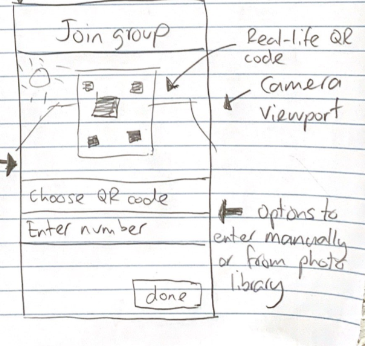 Join group
Real-life QR
code
Camera
Viewport
Choose QR code
Enter number
options to
enter manually
or from photo
library
done